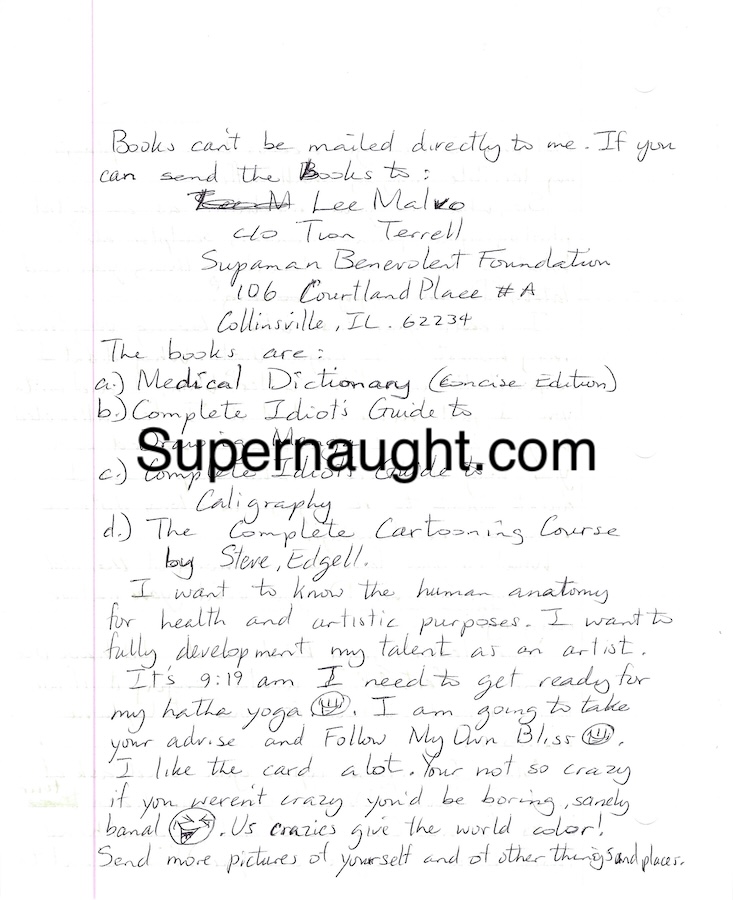 Books can't be mailed directly to me. If you
can send the Books to:
Lee Malvo
c/o Tion Terrell
Supaman Benevolent Foundation
106 Courtland Place #A
Collinsville, IL. 62234
The books are:
a.) Medical Dictionary (Concise Edition)
b.) Complete Idiot's Guide to
Drawing Manga
Supernaught.com
c.) Complete Idiot's Guide to
Caligraphy
d.) The Complete Cartooning Course
by Steve, Edgell.
I want to know the human anatomy
for health and artistic purposes. I want to
fully development my talent as an artist.
It's 9:19 am I need to get ready for
my hatha yoga. I am going to take
your advise and Follow My Own Bliss.
I like the card alot. Your not so crazy
if you weren't crazy you'd be boring, sanely
banal. Us crazies give the world color!
Send more pictures of yourself and of other things and places.